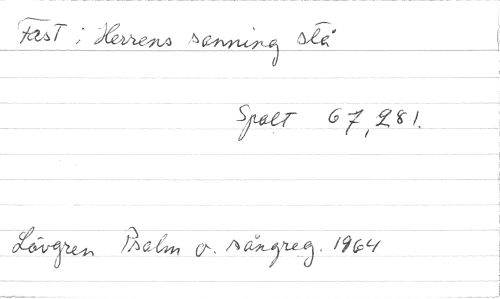 Fast i Herrens sanning stå
Spalt 67, 281.
Lövgren Psalm o. sångreg. 1964